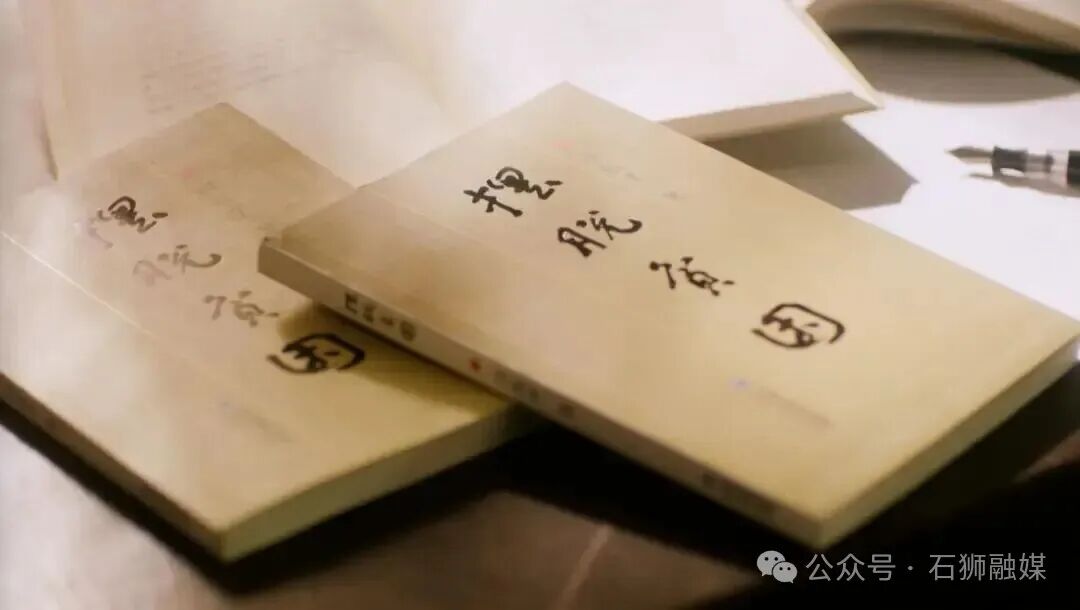 摆脱贫困
摆脱贫困
公众号 · 石狮融媒